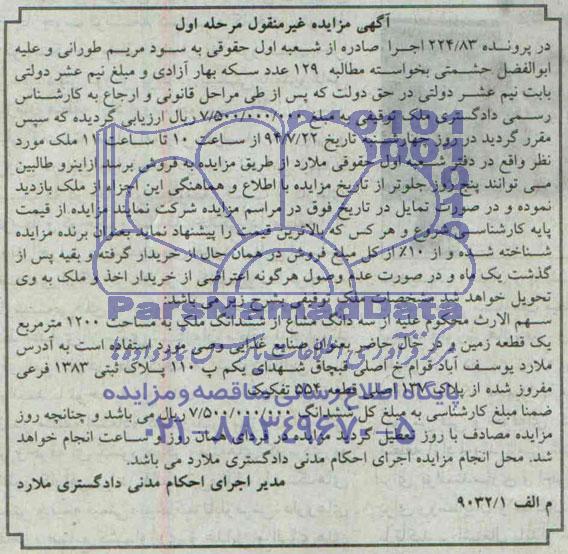 آگهی مزایده غیرمنقول مرحله اول
در پرونده ۲۲۴/۸۳ اجرا صادره از شعبه اول حقوقی به سود مریم طورانی و علیه
ابوالفضل حشمتی بخواسته مطالبه ۱۲۹ عدد سکه بهار آزادی و مبلغ نیم عشر دولتی
بابت نیم عشر دولتی در حق دولت که پس از طی مراحل قانونی و ارجاع به کارشناس
رسمی دادگستری ملک توقیفی به مبلغ ۷/۵۰۰/۰۰۰/۰۰۰ ریال ارزیابی گردیده که سپس
مقرر گردید در روز چهارشنبه تاریخ ۹۴/۷/۲۲ از ساعت ۱۰ تا ساعت ۱۱ ملک مورد
نظر واقع در دفتر شعبه اول حقوقی ملارد از طریق مزایده به فروش برسد ازاینرو طالبین
می توانند پنج روز جلوتر از تاریخ مزایده با اطلاع و هماهنگی این اجراء از ملک بازدید
نموده و در صورت تمایل در تاریخ فوق در مراسم مزایده شرکت نمایند مزایده از قیمت
پایه کارشناسی شروع و هر کس که بالاترین قیمت را پیشنهاد نماید بعنوان برنده مزایده
شناخته شده و از ۱۰٪ از کل مبلغ فروش در همان حال از خریدار گرفته و بقیه پس از
گذشت یک ماه و در صورت عدم وصول هرگونه اعتراضی از خریدار اخذ و ملک به وی
تحویل خواهد شد مشخصات ملک توقیفی بشرح زیر می باشد:
سهم الارث محکوم علیه از سه دانگ مشاع از ششدانگ ملک به مساحت ۱۲۰۰ مترمربع
یک قطعه زمین و در حال حاضر بعنوان صنایع غذایی مورد استفاده است به آدرس
ملارد یوسف آباد قوام خ اصلی قبچاق شهدای یکم پ ۱۱۰ پلاک ثبتی ۱۳۸۳ فرعی
مفروز شده از پلاک ۱۳۷ اصلی قطعه ۵۵۴ تفکیکی
ضمنا مبلغ کارشناسی به مبلغ کل ششدانگ ۷/۵۰۰/۰۰۰/۰۰۰ ریال می باشد و چنانچه روز
مزایده مصادف با روز تعطیل گردید مزایده در فردای همان روز و ساعت انجام خواهد
شد. محل انجام مزایده اجرای احکام مدنی دادگستری ملارد می باشد.
مدیر اجرای احکام مدنی دادگستری ملارد
م الف ۹۰۳۲/۱
ParsNamadData
پایگاه اطلاع رسانی مناقصه و مزایده
۰۲۱-۸۸۳۴۹۶۷۰-۵